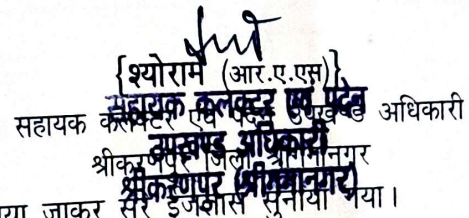 {श्योराम (आर.ए.एस)}
सहायक कलक्टर एवं पदेन उपखण्ड अधिकारी
सहायक कलक्टर एवं पदेन
उपखण्ड अधिकारी
श्रीकरणपुर जिला श्रीगंगानगर
श्रीकरणपुर (श्रीगंगानगर)
या जाकर सरे इजलास सुनाया गया।